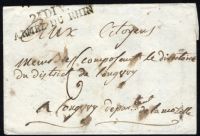 2e DIV
ARMÉE DU RHIN
Aux Citoyens
Membres Composent le directoire
du district de Longwy
9
a Longwy département de la moselle